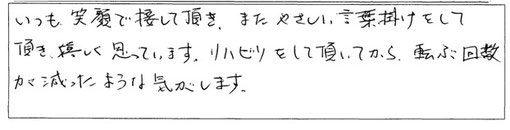 いつも笑顔で接して頂き、またやさしい言葉掛けをして
頂き、嬉しく思っています。リハビリをして頂いてから、転ぶ回数
が減ったような気がします。